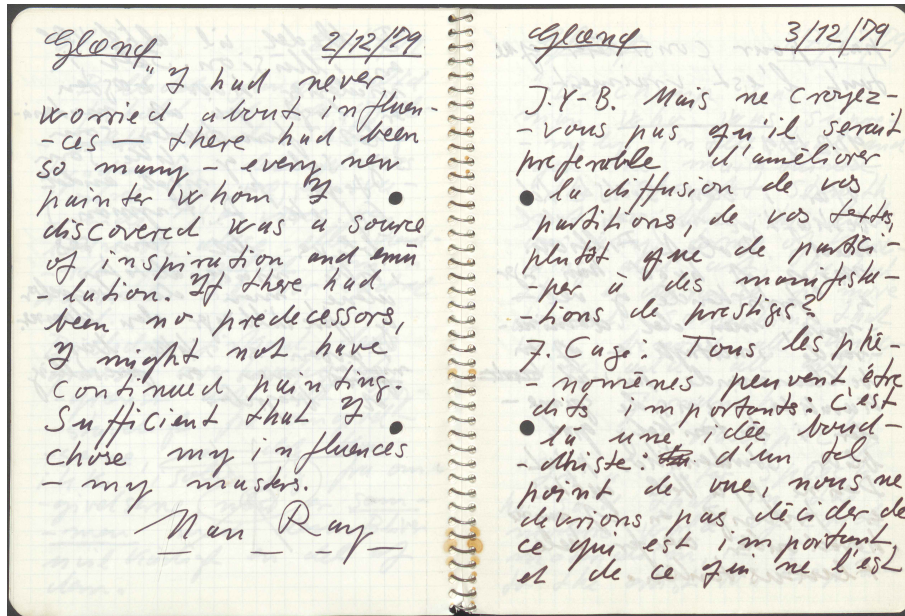 Glænd 2/12/79
"I had never
worried about influen-
-ces — there had been
so many — every new
painter whom I
discovered was a source
of inspiration and emu
-lation. If there had
been no predecessors,
I might not have
continued painting.
Sufficient that I
chose my influences
— my masters.
Man Ray
Glænd 3/12/79
J.Y-B. Mais ne croyez-
-vous pas qu'il serait
preferable d'améliorer
la diffusion de vos
partitions, de vos textes,
plutôt que de partici-
-per à des manifesta-
-tions de prestiges?
J. Cage: Tous les phé-
-nomènes peuvent être
dits importants: C'est
là une idée boud-
-dhiste: d'un tel
point de vue, nous ne
devrions pas décider de
ce qui est important
et de ce qui ne l'est